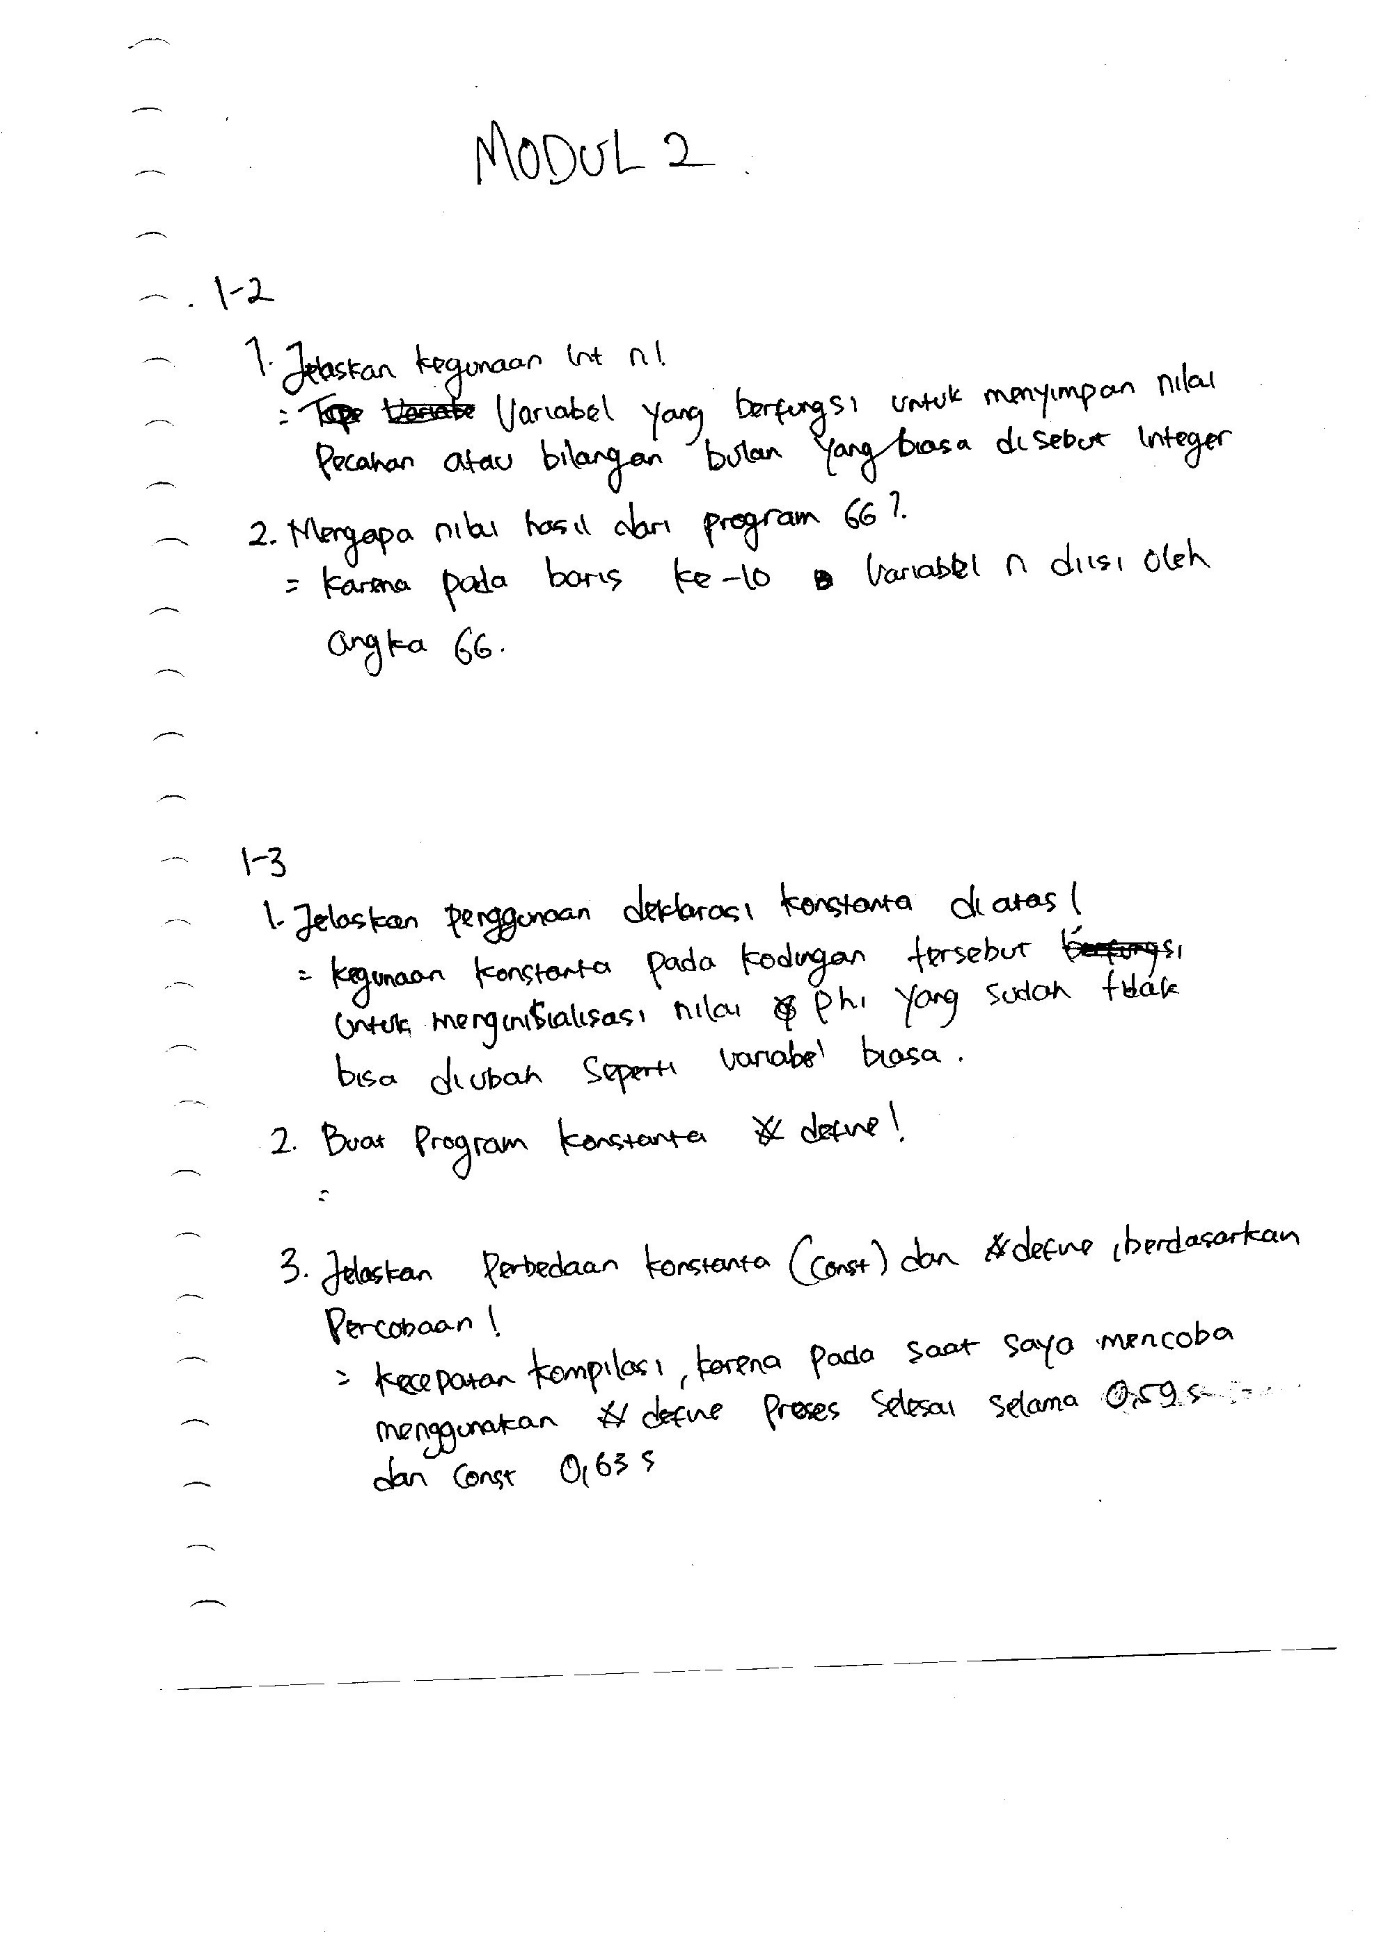 MODUL 2
1-2
1. Jelaskan kegunaan int n!
= Variabel yang berfungsi untuk menyimpan nilai
Pecahan atau bilangan bulan yang biasa disebut Integer
2. Mengapa nilai hasil dari program 66?
= Karena pada baris ke-10 Variabel n diisi oleh
angka 66.
1-3
1. Jelaskan penggunaan deklarasi konstanta diatas!
= kegunaan konstanta pada kodingan tersebut berfungsi
untuk menginisialisasi nilai phi yang sudah tidak
bisa diubah seperti variabel biasa.
2. Buat Program konstanta # define!
=
3. Jelaskan Perbedaan konstanta (const) dan # define, berdasarkan
Percobaan!
= kecepatan kompilasi, karena pada saat saya mencoba
menggunakan # define Proses selesai selama 0,59 s
dan const 0,63 s